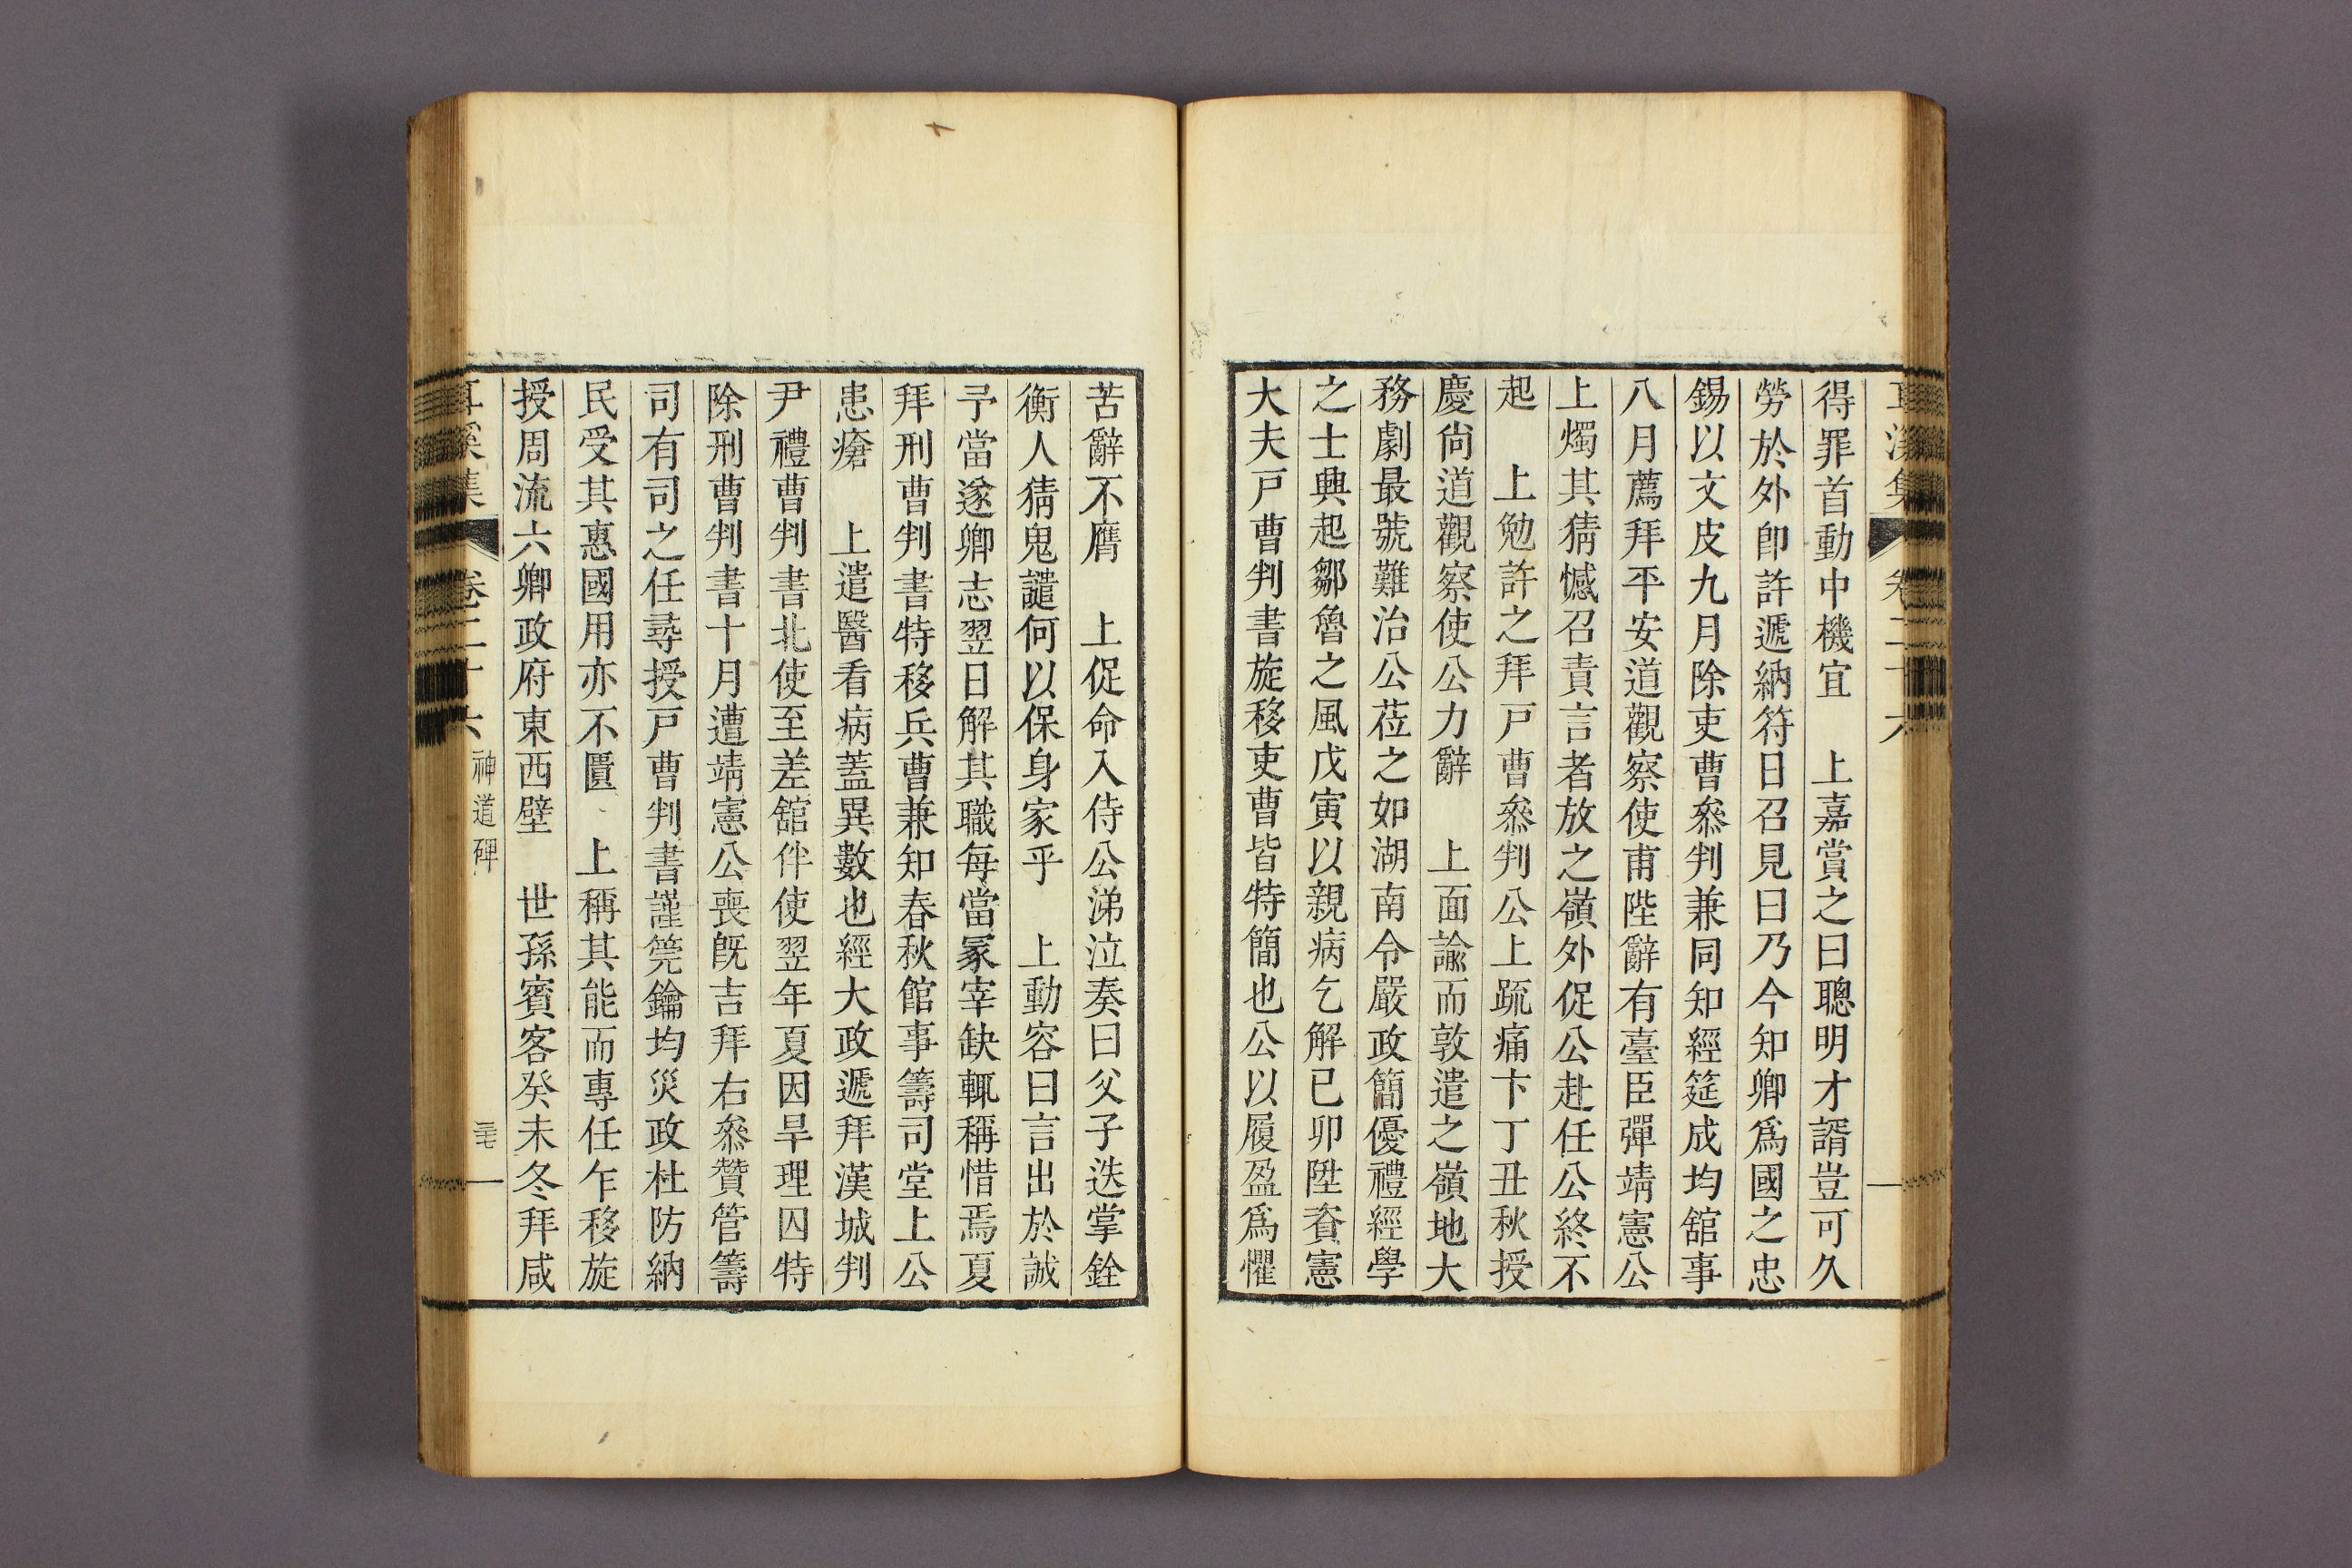 得罪首動中機宜　上嘉賞之曰聰明才諝豈可久
勞於外卽許遞納符日召見曰乃今知卿爲國之忠
錫以文皮九月除吏曹叅判兼同知經筵成均舘事
八月薦拜平安道觀察使甫陛辭有臺臣彈靖憲公
上燭其猜憾召責言者放之嶺外促公赴任公終不
起　上勉許之拜戶曹叅判公上疏痛卞丁丑秋授
慶尙道觀察使公力辭　上面諭而敦遣之嶺地大
務劇最號難治公莅之如湖南令嚴政簡優禮經學
之士興起鄒魯之風戊寅以親病乞解已卯陞資憲
大夫戶曹判書旋移吏曹皆特簡也公以履盈爲懼
苦辭不膺　上促命入侍公涕泣奏曰父子迭掌銓
衡人猜鬼譴何以保身家乎　上動容曰言出於誠
予當遂卿志翌日解其職每當冢宰缺輒稱惜焉夏
拜刑曹判書特移兵曹兼知春秋館事籌司堂上公
患瘡　上遣醫看病蓋異數也經大政遞拜漢城判
尹禮曹判書北使至差舘伴使翌年夏因旱理囚特
除刑曹判書十月遭靖憲公喪旣吉拜右叅贊管籌
司有司之任尋授戶曹判書謹筦鑰均災政杜防納
民受其惠國用亦不匱　上稱其能而專任乍移旋
授周流六卿政府東西壁　世孫賓客癸未冬拜咸
耳溪集　卷二十六　神道碑